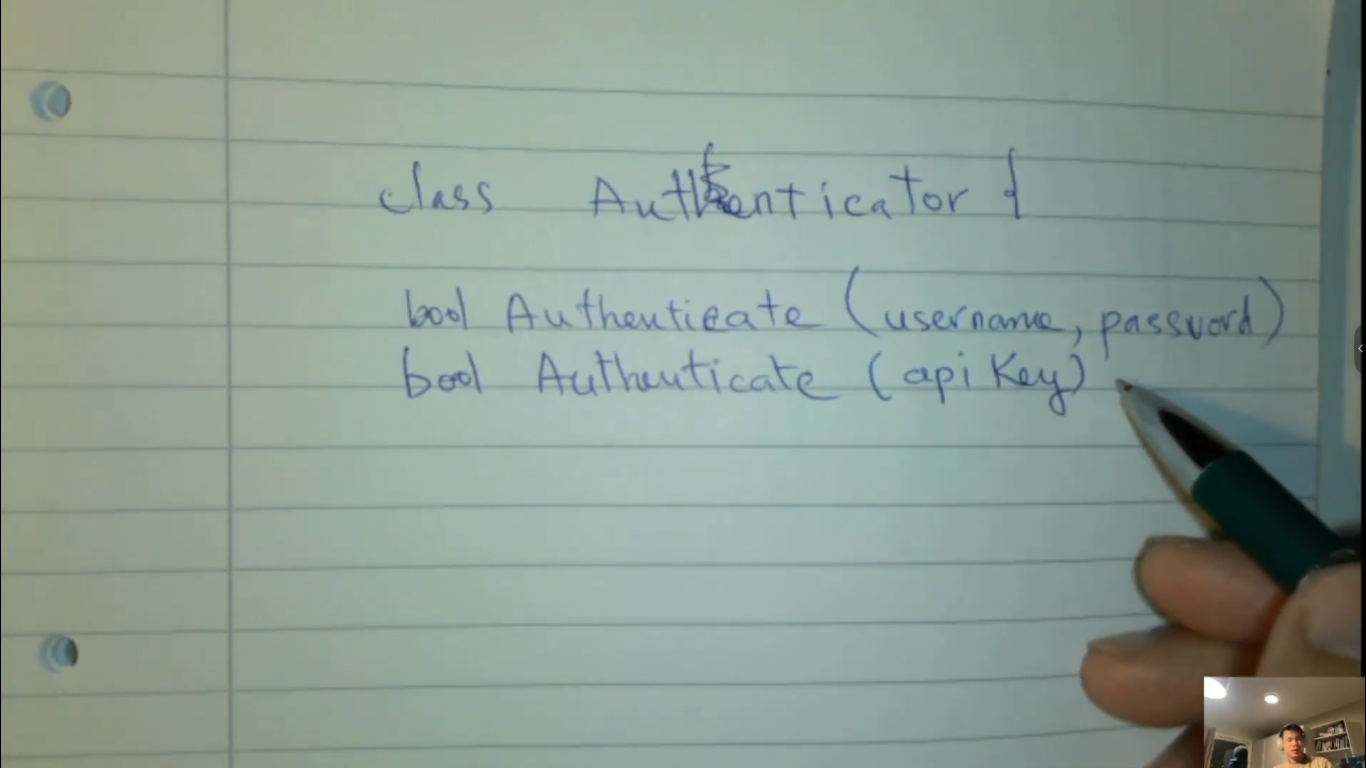 class Authenticator {
bool Authenticate (username, password)
bool Authenticate (api Key)